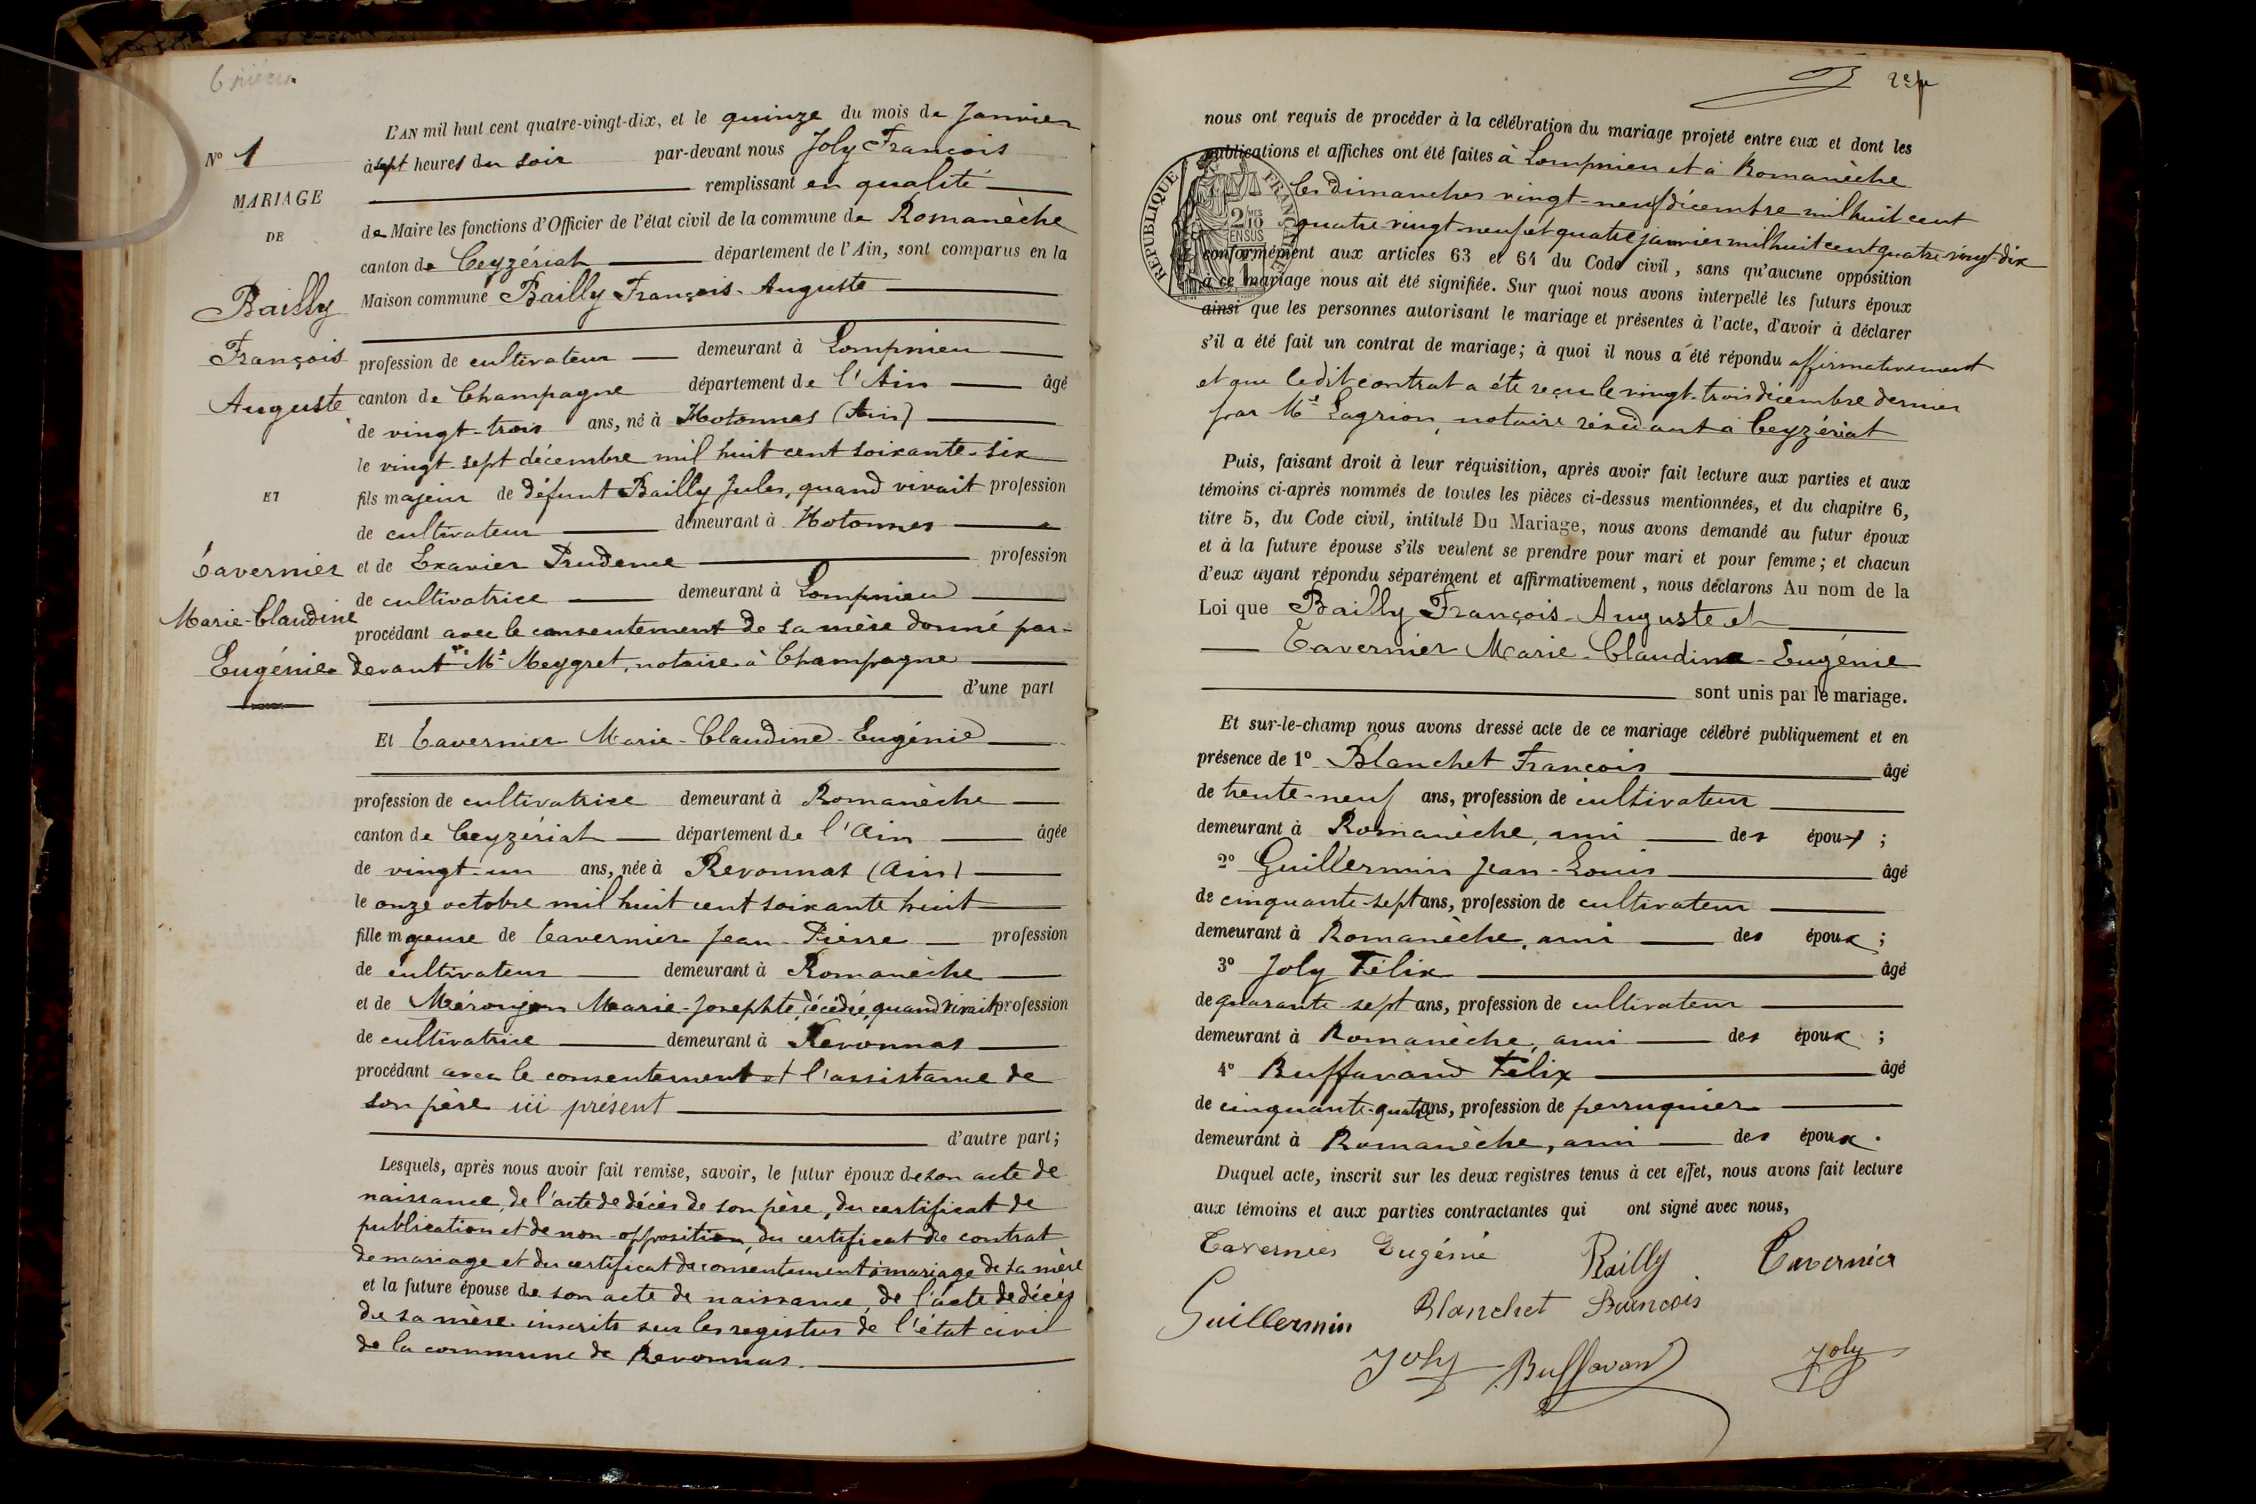 6 pièces
L'AN mil huit cent quatre-vingt-dix, et le quinze du mois de Janvier
à sept heures du soir par-devant nous Joly François
remplissant en qualité
de Maire les fonctions d'Officier de l'état civil de la commune de Romanèche
canton de Ceyzériat département de l'Ain, sont comparus en la
Maison commune Bailly François-Auguste
profession de cultivateur demeurant à Lompnieu
canton de Champagne département de l'Ain âgé
de vingt-trois ans, né à Hotonnes (Ain)
le vingt-sept décembre mil huit cent soixante-six
fils majeur de défunt Bailly Jules, quand vivait profession
de cultivateur demeurant à Hotonnes
et de Exavier Prudence profession
de cultivatrice demeurant à Lompnieu
procédant avec le consentement de sa mère donné par-
devant Me Meygret, notaire à Champagne
d'une part
Et Tavernier Marie-Claudine-Eugénie
profession de cultivatrice demeurant à Romanèche
canton de Ceyzériat département de l'Ain âgée
de vingt-un ans, née à Revonnas (Ain)
le onze octobre mil huit cent soixante huit
fille majeure de Tavernier Jean-Pierre profession
de cultivateur demeurant à Romanèche
et de Marie-Josephte, décédée, quand vivait profession
de cultivatrice demeurant à Revonnas
procédant avec le consentement et l'assistance de
son père ici présent
d'autre part;
Lesquels, après nous avoir fait remise, savoir, le futur époux de son acte de
naissance, de l'acte de décès de son père, du certificat de
publication et de non-opposition, du certificat de contrat
de mariage et du certificat de consentement à mariage de sa mère
et la future épouse de son acte de naissance, de l'acte de décès
de sa mère inscrits sur les registres de l'état civil
de la commune de Revonnas.
N° 1
MARIAGE
DE
Bailly
François
Auguste
ET
Tavernier
Marie-Claudine
Eugénie
nous ont requis de procéder à la célébration du mariage projeté entre eux et dont les
publications et affiches ont été faites à Lompnieu et à Romanèche
les dimanches vingt-neuf décembre mil huit cent
quatre-vingt-neuf et quatre janvier mil huit cent quatre-vingt-dix
conformément aux articles 63 et 64 du Code civil, sans qu'aucune opposition
à ce mariage nous ait été signifiée. Sur quoi nous avons interpellé les futurs époux
ainsi que les personnes autorisant le mariage et présentes à l'acte, d'avoir à déclarer
s'il a été fait un contrat de mariage; à quoi il nous a été répondu affirmativement
et que ledit contrat a été reçu le vingt-trois décembre dernier
par Me Lagrion, notaire résidant à Ceyzériat
Puis, faisant droit à leur réquisition, après avoir fait lecture aux parties et aux
témoins ci-après nommés de toutes les pièces ci-dessus mentionnées, et du chapitre 6,
titre 5, du Code civil, intitulé Du Mariage, nous avons demandé au futur époux
et à la future épouse s'ils veulent se prendre pour mari et pour femme; et chacun
d'eux ayant répondu séparément et affirmativement, nous déclarons Au nom de la
Loi que Bailly François-Auguste et
Tavernier Marie-Claudine-Eugénie
sont unis par le mariage.
Et sur-le-champ nous avons dressé acte de ce mariage célébré publiquement et en
présence de 1° Blanchet François âgé
de trente-neuf ans, profession de cultivateur
demeurant à Romanèche, ami des époux;
2° Guillermin Jean-Louis âgé
de cinquante-sept ans, profession de cultivateur
demeurant à Romanèche, ami des époux;
3° Joly Félix âgé
de quarante-sept ans, profession de cultivateur
demeurant à Romanèche, ami des époux;
4° Buffavand Félix âgé
de cinquante-quatre ans, profession de perruquier
demeurant à Romanèche, ami des époux.
Duquel acte, inscrit sur les deux registres tenus à cet effet, nous avons fait lecture
aux témoins et aux parties contractantes qui ont signé avec nous,
Tavernier Eugénie Bailly Tavernier
Guillermin Blanchet François
Joly Buffavand Joly
RÉPUBLIQUE FRANÇAISE
2/10
EN SUS